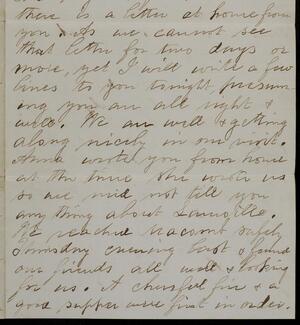 there is a letter at home from
you. As we cannot see
that letter for two days or
more, yet I will write a few
lines to you tonight presum-
ing you are all right &
well. We are well & getting
along nicely in our visit.
Anna wrote you from home
at the time she wrote us
so we need not tell you
any thing about
We reached safely
Thursday evening last & found
our friends all well & looking
for us. A cheerful fire & a
good supper were first in order